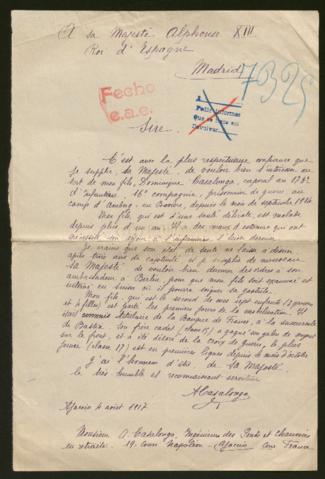 A sa Majesté Alphonse XIII
Roi d'Espagne
Madrid
7325
Fecho
e.a.e.
Sire,
C'est avec la plus respectueuse confiance que
je supplie sa Majesté, de vouloir bien s'intéresser au
sort de mon fils, Dominique Casalonga, caporal au 173e
d'infanterie, 16e compagnie, prisonnier de guerre au
camp d'Amberg, en Bavière, depuis le mois de septembre 1914
Mon fils, qui est d'une santé délicate, est malade
depuis plus d'un an. Il a des maux d'estomac qui ont
nécessité son séjour à l'infirmerie à bien
Je crains que son état de santé ne laisse à désirer,
après trois ans de captivité et je supplie de nouveau
sa Majesté de vouloir bien donner des ordres à son
ambassadeur à Berlin, pour que mon fils soit
interné en Suisse où il pourra soigner sa
Mon fils, qui est le second de mes sept enfants (3 garçons
et 4 filles) est parti les premiers jours de la mobilisation. Il
était commis titulaire de la Banque de France, à la succursale
de Bastia. Son frère cadet (classe 15) a gagné ses galons de sergent
sur le front, et a été décoré de la croix de guerre, le plus
jeune (classe 17) est en première ligne depuis le mois d'octobre
J'ai l'honneur d'être de sa Majesté
le très humble et reconnaissant serviteur
A Casalonga
Ajaccio 4 août 1917
Monsieur A. Casalonga, Ingénieur des Ponts et Chaussées
en retraite. 19. cours Napoléon - Ajaccio Corse France